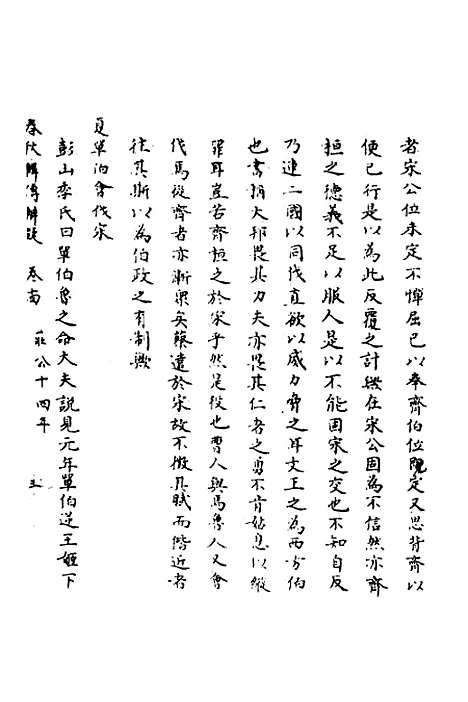 者宋公位未定不憚屈已以奉齊伯位既定又思背齊以
便已行是以為此反覆之計幾在宋公固為不信然亦齊
桓之德義不足以服人是以不能固宋之交也不知自反
乃連二國以同伐直欲以威力脅之耳文王之為西方伯
也書稱大邦畏其力夫亦畏其仁者之勇不肯姑息以縱
罪耳豈若齊桓之於宋乎然是役也曹人與焉魯人又會
伐焉從齊者亦漸眾矣蔡遠於宋故不徵其賦而偕近者
往其斯以為伯政之有制與
夏單伯會伐宋
彭山季氏曰單伯魯之命大夫說見元年單伯逆王姬下
春秋輯傳辨疑 卷 莊公十四年 五